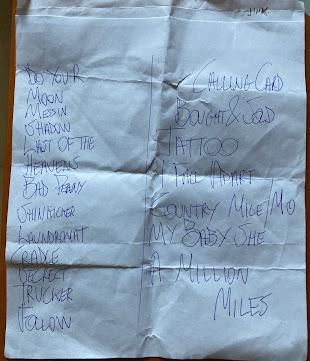 DO YOUR
MOON
MESSIN
SHADOW
LAST OF THE
HEAVENS
BAD PENNY
SHINKICKER
LAUNDROMAT
CRADLE
SECRET
TRUCKER
FOLLOW
CALLING CARD
BOUGHT & SOLD
TATTOO
I FALL APART
COUNTRY MILE/MO
MY BABY SHE
A MILLION
MILES